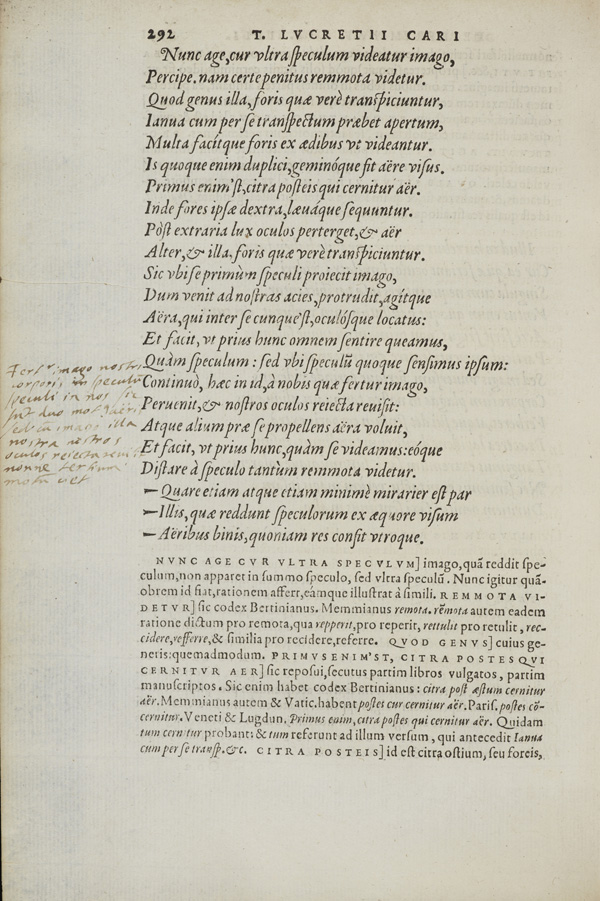 292 T. LVCRETII CARI
Nunc age, cur vltra speculum videatur imago,
Percipe. nam certe penitus remmota videtur.
Quod genus illa, foris quæ verè transpiciuntur,
Ianua cum per se transpectum præbet apertum,
Multa facítque foris ex ædibus vt videantur.
Is quoque enim duplici, geminóque fit aëre visus.
Primus enim'st, citra posteis qui cernitur aër.
Inde fores ipsæ dextra, læuáque sequuntur.
Pòst extraria lux oculos perterget, & aër
Alter, & illa, foris quæ verè transpiciuntur.
Sic vbi se primùm speculi proiecit imago,
Dum venit ad nostras acies, protrudit, agítque
Aëra, qui inter se cunque'st, oculósque locatus:
Et facit, vt prius hunc omnem sentire queamus,
Quàm speculum: sed vbi speculũ quoque sensimus ipsum:
Continuò, hæc in id, à nobis quæ fertur imago,
Peruenit, & nostros oculos reiecta reuisit:
Atque alium præ se propellens aëra voluit,
Et facit, vt prius hunc, quàm se videamus: eóque
Distare à speculo tantum remmota videtur.
Quare etiam atque etiam minimè mirarier est par
Illis, quæ reddunt speculorum ex æquore visum
Aëribus binis, quoniam res confit vtroque.
imago nostri
corporis in speculũ
speculi in nos sic
sũt duo
imago illa
nostra nostros
oculos reiecta
nonne tertium
NVNC AGE CVR VLTRA SPECVLVM] imago, quã reddit spe-
culum, non apparet in summo speculo, sed vltra speculũ. Nunc igitur quã-
obrem id fiat, rationem affert, eámque illustrat à simili. REMMOTA VI-
DETVR] sic codex Bertinianus. Memmianus remota. remota autem eadem
ratione dictum pro remota, qua repperit, pro reperit, rettulit pro retulit, rec-
cidere, refferre, & similia pro recidere, referre. QVOD GENVS] cuius ge-
neris: quemadmodum. PRIMVS ENIM'ST, CITRA POSTES QVI
CERNITVR AER] sic reposui, secutus partim libros vulgatos, partim
manuscriptos. Sic enim habet codex Bertinianus: citra post æstum cernitur
aër. Memmianus autem & Vatic. habent postes cur cernitur aër. Paris. postes cõ-
cernitur. Veneti & Lugdun. Primus enim, citra postes qui cernitur aër. Quidam
tum cernitur probant: & tum referunt ad illum versum, qui antecedit Ianua
cum per se transp. &c. CITRA POSTEIS] id est citra ostium, seu foreis,